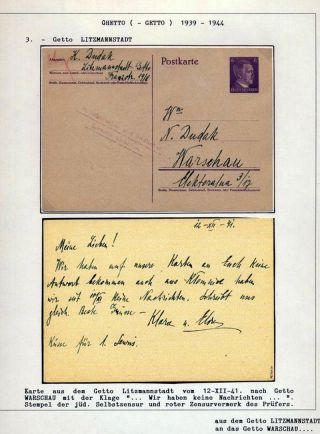 GHETTO ( - GETTO ) 1939 - 1944
3. - Getto LITZMANNSTADT
K. Dudak
Litzmannstadt Getto
Postkarte
Wp.
N. Dudak
Warschau
Elektoralna 3/
12-XII-41.
Meine Lieben!
Wir haben auf unsere Karten an Euch keine
Antwort bekommen auch aus
wir seit keine Nachrichten. Schreibt uns
gleich. Beste Grüsse -
Klara u.
Küsse für
Karte aus dem Getto Litzmannstadt vom 12-XII-41. nach Getto
WARSCHAU mit der Klage "... Wir haben keine Nachrichten ... ".
Stempel der jüd. Selbstzensur und roter Zensurvermerk des Prüfers.
aus dem Getto LITZMANNSTADT
an das Getto WARSCHAU...